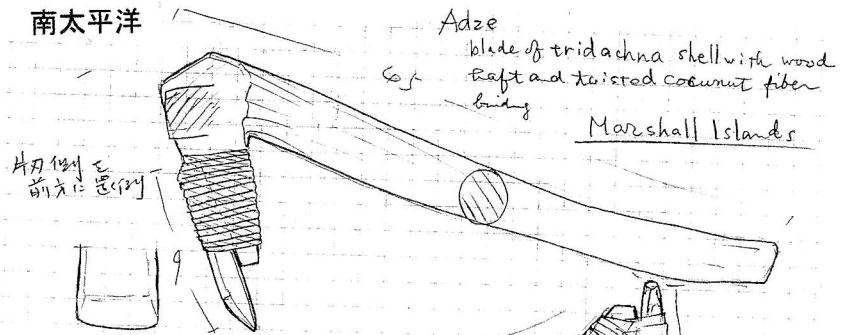 南太平洋
Adze
blade of tridachna shell with wood
haft and twisted cocunut fiber
binding
Marshall Islands
65
片刃側を
前方に置く例
9